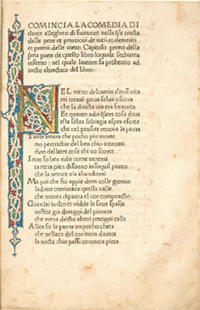 COMINCIA LA COMEDIA DI
dante alleghieri di fiorenze nella q̄le tracta
delle pene et punitioni de uitii et demeriti
et premii delle uirtu: Capitolo primo della
p̄ma parte de questo libro loquale sechiama
inferno: nel quale lautore fa prohemio ad
tucto eltractato del libro:
NEL mezo delcamin dinr̄a uita
mi trouai una selua oscura
che la diricta uia era smarrita
Et quanto adir q̄lera cosa dura
esta selua seluagia aspra eforte
che nel pensier renoua la paura
Tante amara che pocho piu morte
ma pertractar del ben chio uitrouai
diro dellaltre cose chi uo scorte
I non so ben ridir come uentrai
tantera pien disonno insuquel punto
che la uerace uia abandonai
Ma poi che fui appie dum colle gionto
ladoue terminaua quella ualle
che mauea dipaura el cor compuncto
Guardai inalto et uidde le sue spalle
uestite gia deraggi del pianeta
che mena dricto altrui per ogni calle
Allor fu la paura un pocho cheta
che nellaco del cor mera durata
la nocte chio passai contanta pieta